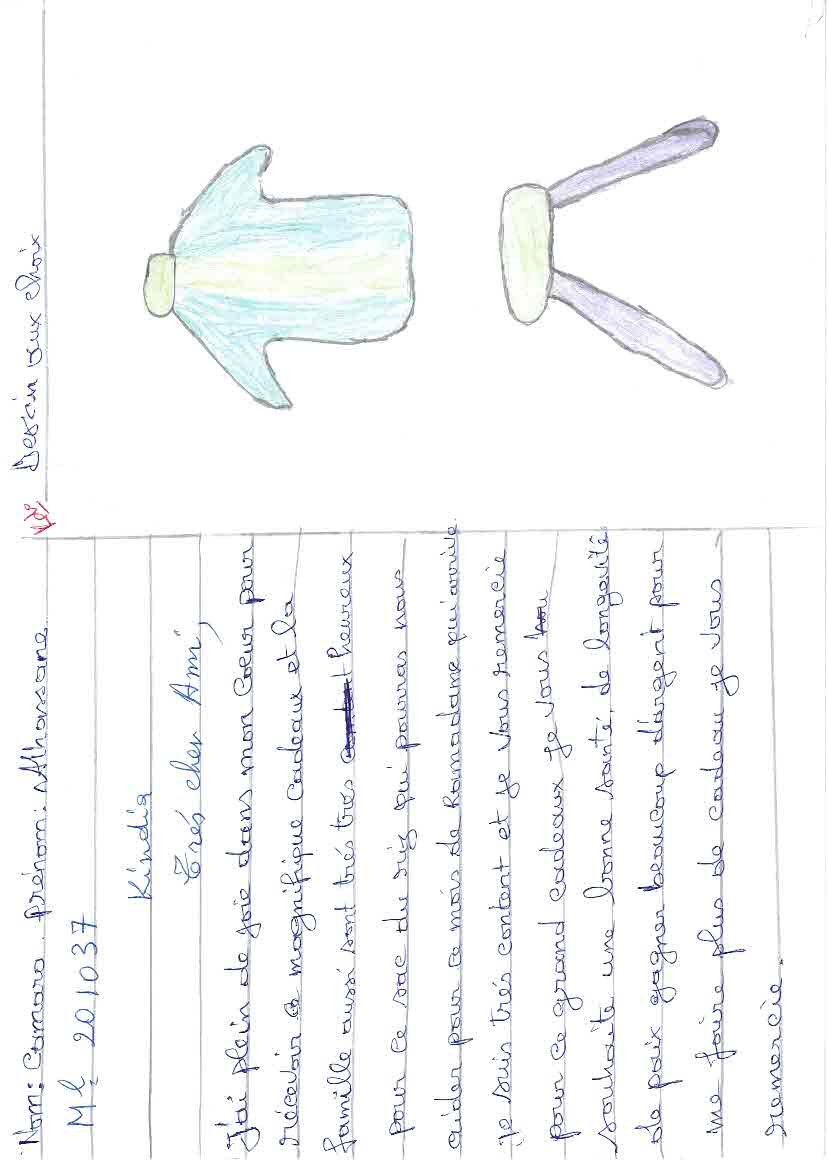 Nom: Camara Prénom: Alhassane
Mle 201037
Kindia
Très cher Ami,
J'ai plein de joie dans mon Coeur pour
récevoir ce magnifique Cadeaux et la
famille aussi sont trés trés heureux
pour ce sac du riz qui pourras nous
aider pour ce mois de Ramadame qu'arrive.
je suis très contant et je vous remercie
pour ce grand cadeaux je vous
souhaite une bonne santé, de longévité
de paix gagner beaucoup d'argent pour
me faire plus de cadeau je vous
remercie.
Dessin veux choix